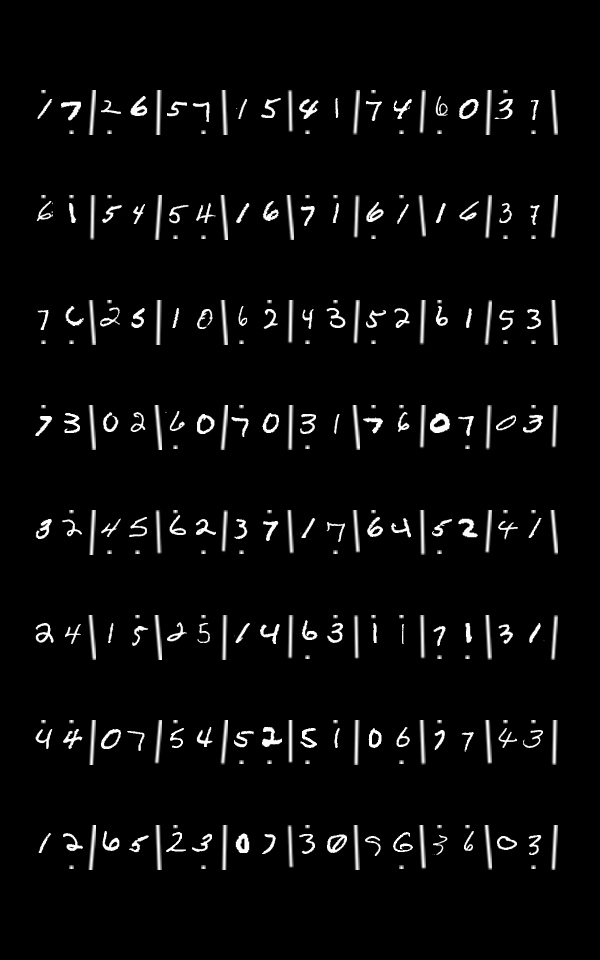 1 7 | 2 6 | 5 7 | 1 5 | 4 1 | 7 4 | 6 0 | 3 1 |
6 1 | 5 4 | 5 4 | 1 6 | 7 1 | 6 1 | 1 6 | 3 7 |
7 6 | 2 5 | 1 0 | 6 2 | 4 3 | 5 2 | 6 1 | 5 3 |
7 3 | 0 2 | 6 0 | 7 0 | 3 1 | 7 6 | 0 7 | 0 3 |
3 2 | 4 5 | 6 2 | 3 7 | 1 7 | 6 4 | 5 2 | 4 1 |
2 4 | 1 5 | 2 5 | 1 4 | 6 3 | 1 1 | 7 1 | 3 1 |
4 4 | 0 7 | 5 4 | 5 2 | 5 1 | 0 6 | 7 7 | 4 3 |
1 2 | 6 5 | 2 3 | 0 7 | 3 0 | 5 6 | 3 6 | 0 3 |